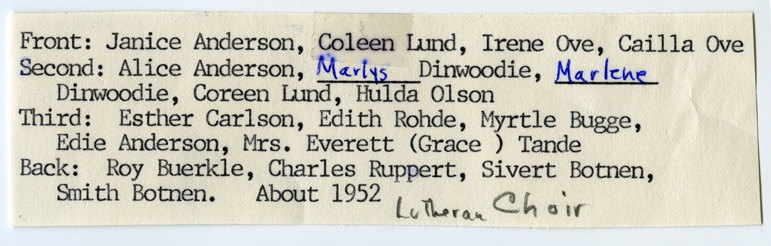 Front: Janice Anderson, Coleen Lund, Irene Ove, Cailla Ove
Second: Alice Anderson, Marlys Dinwoodie, Marlene
Dinwoodie, Coreen Lund, Hulda Olson
Third: Esther Carlson, Edith Rohde, Myrtle Bugge,
Edie Anderson, Mrs. Everett (Grace ) Tande
Back: Roy Buerkle, Charles Ruppert, Sivert Botnen,
Smith Botnen. About 1952
Lutheran Choir